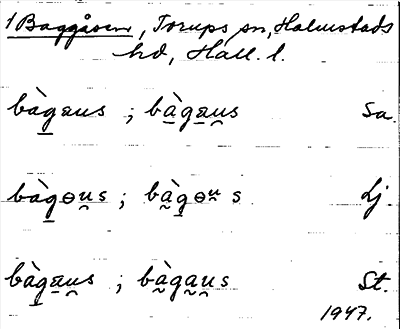 1 Baggåsen, Torups sn, Halmstads
hd, Hall. l.
bàg̲aus ; bà̲ga̲u̯s Sa.
bàg̲ɵu̯s ; bà̰g̲ɵᵘ̯s Lj.
bàg̲a̲u̯s ; bà̰ga̰u̯s St.
1947.